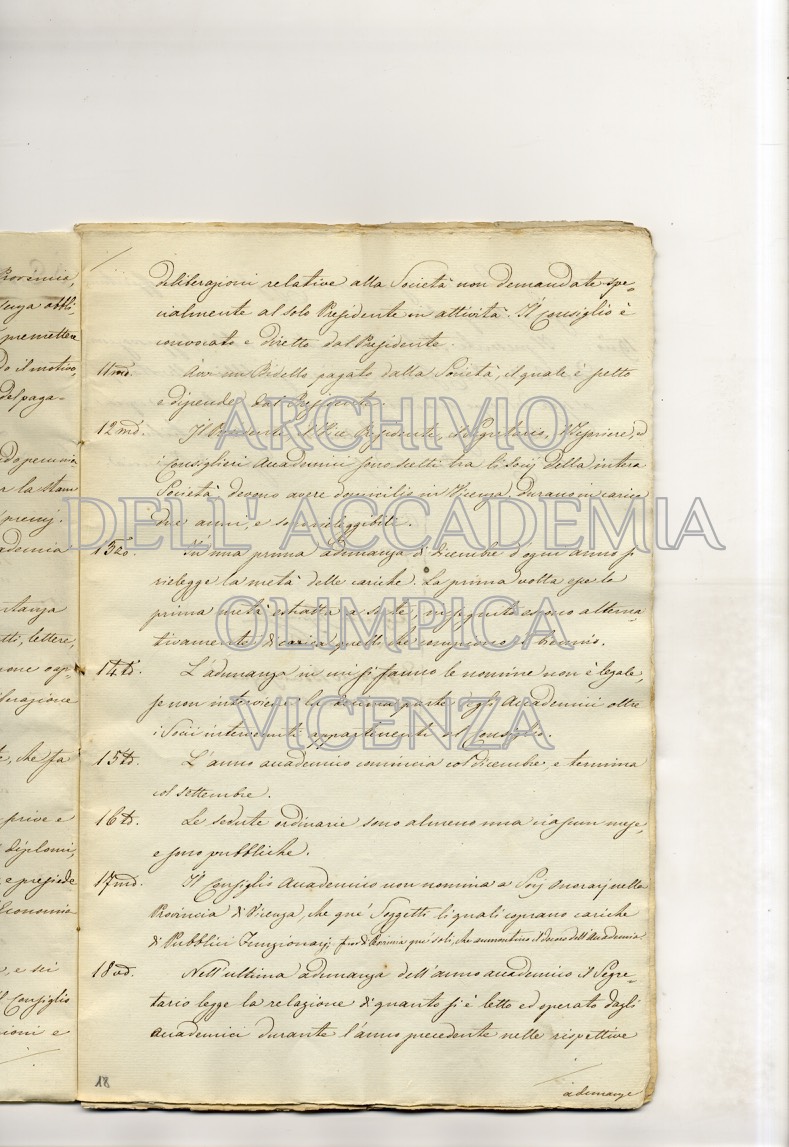 deliberazioni relative alla Società non demandate spe=
cialmente al solo Presidente in attività. Il Consiglio è
convocato e diretto dal Presidente.
11mo. Avvi un Bidello pagato dalla Società, il quale è eletto
e dipende dal Presidente.
12mo. Il Presidente, il Vice Presidente, il Segretario, il Tesoriere, ed
i Consiglieri Accademici sono scelti tra li Socj della intera
Società devono avere domicilio in Vicenza, durano in carica
due anni, e sono rieleggibili.
13zo. In una prima adunanza di Dicembre d'ogni anno si
rielegge la metà delle cariche. La prima volta esce la
prima metà estratta a sorte, in seguito escono alterna=
tivamente di carica quelli che compiono
14to. L'adunanza in cui si fanno le nomine non è legale,
se non interviene la parte degli Accademici oltre
i Socii intervenuti appartenenti al Consiglio.
15to. L'anno accademico comincia col Dicembre, e termina
col settembre.
16to. Le sedute ordinarie sono almeno una ciascun mese,
e sono pubbliche.
17mo. Il Consiglio Accademico non nomina a Socj Onorarj nella
Provincia di Vicenza, che que' Soggetti li quali coprano cariche
di Pubblici Funzionarj, fuori di Provincia que' soli, che aumentino il decoro dell'Accademia
18vo. Nell'ultima adunanza dell'anno accademico il Segre=
tario legge la relazione di quanto si è letto ed operato dagli
Accademici durante l'anno precedente nelle rispettive
adunanze
18
Provincia,
senza
premettere
il motivo,
del paga=
la Stam
ademia
tti, lettere,
razione
te, che fa
prive e
diplomi,
e presiede
Economia
e sei
il Consiglio
ioni e
ARCHIVIO
DELL' ACCADEMIA
OLIMPICA
VICENZA